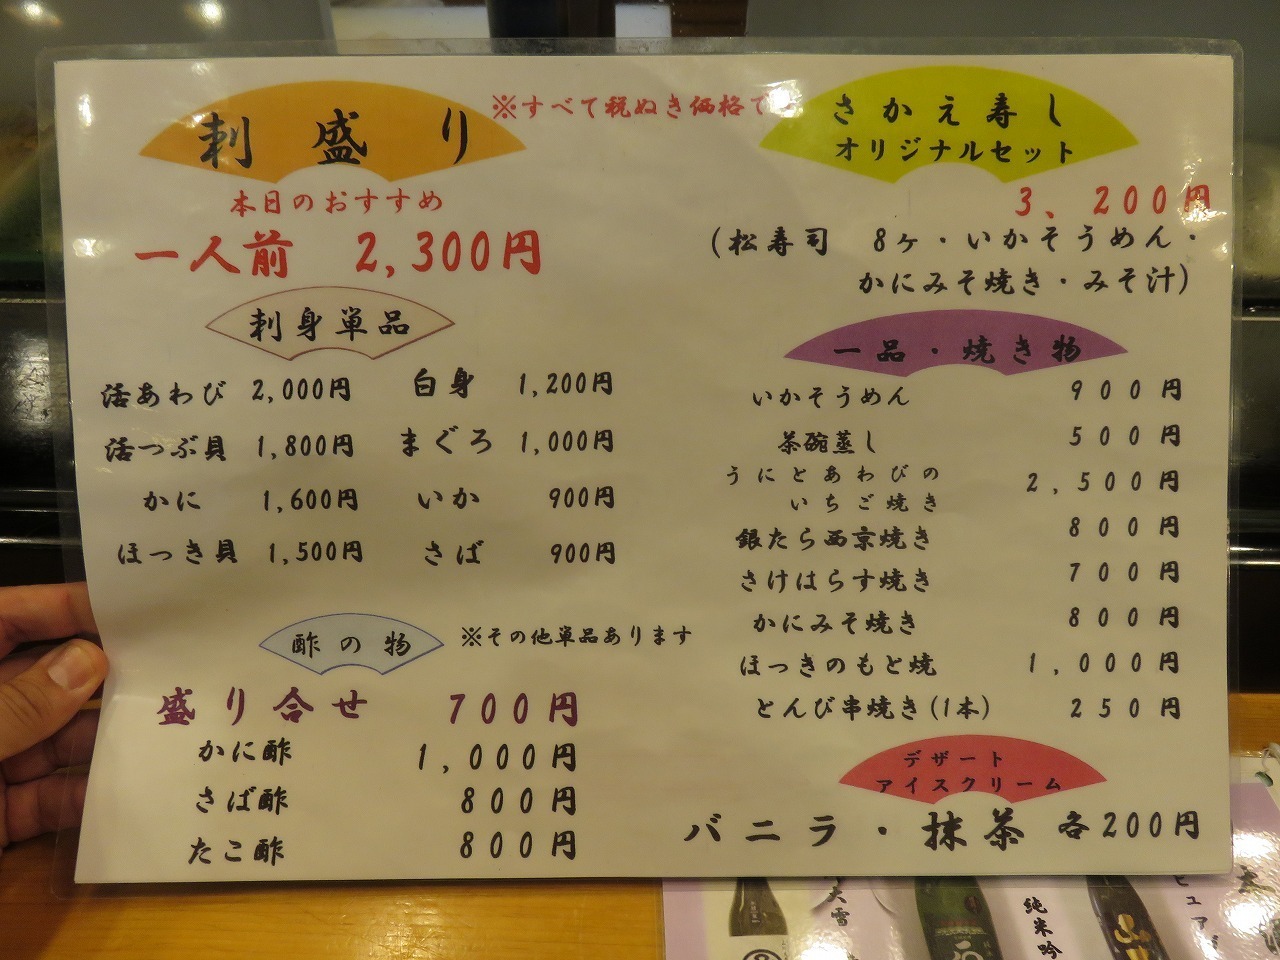 ※すべて税ぬき価格で
刺盛り
本日のおすすめ
一人前 2,300円
刺身単品
活あわび 2,000円 白身 1,200円
活つぶ貝 1,800円 まぐろ 1,000円
かに 1,600円 いか 900円
ほっき貝 1,500円 さば 900円
酢の物
※その他単品あります
盛り合せ 700円
かに酢 1,000円
さば酢 800円
たこ酢 800円
さかえ寿し
オリジナルセット
3、200円
(松寿司 8ヶ・いかそうめん・
かにみそ焼き・みそ汁)
一品・焼き物
いかそうめん 900円
茶碗蒸し 500円
うにとあわびの
いちご焼き 2,500円
銀たら西京焼き 800円
さけはらす焼き 700円
かにみそ焼き 800円
ほっきのもと焼 1,000円
とんび串焼き(1本) 250円
デザート
アイスクリーム
バニラ・抹茶 各200円
大雪
純米吟
ピュア